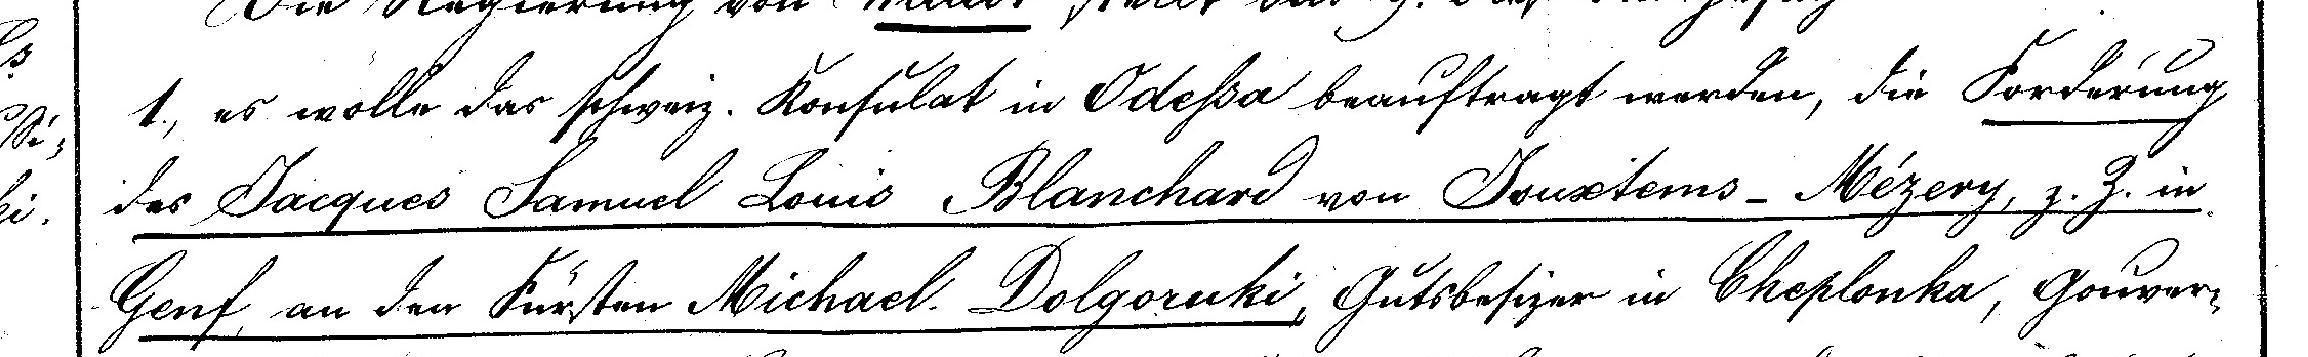 Die Regierung von
1., es wolle das schweiz. Konsulat in Odessa beauftragt werden, die Forderung
des Jacques Samuel Louis Blanchard von Jouxtems - Mézery, z. Z. in
Genf, an den Fürsten Michael Dolgoruki, Gutsbesizer in Cheplonka, Gouver-